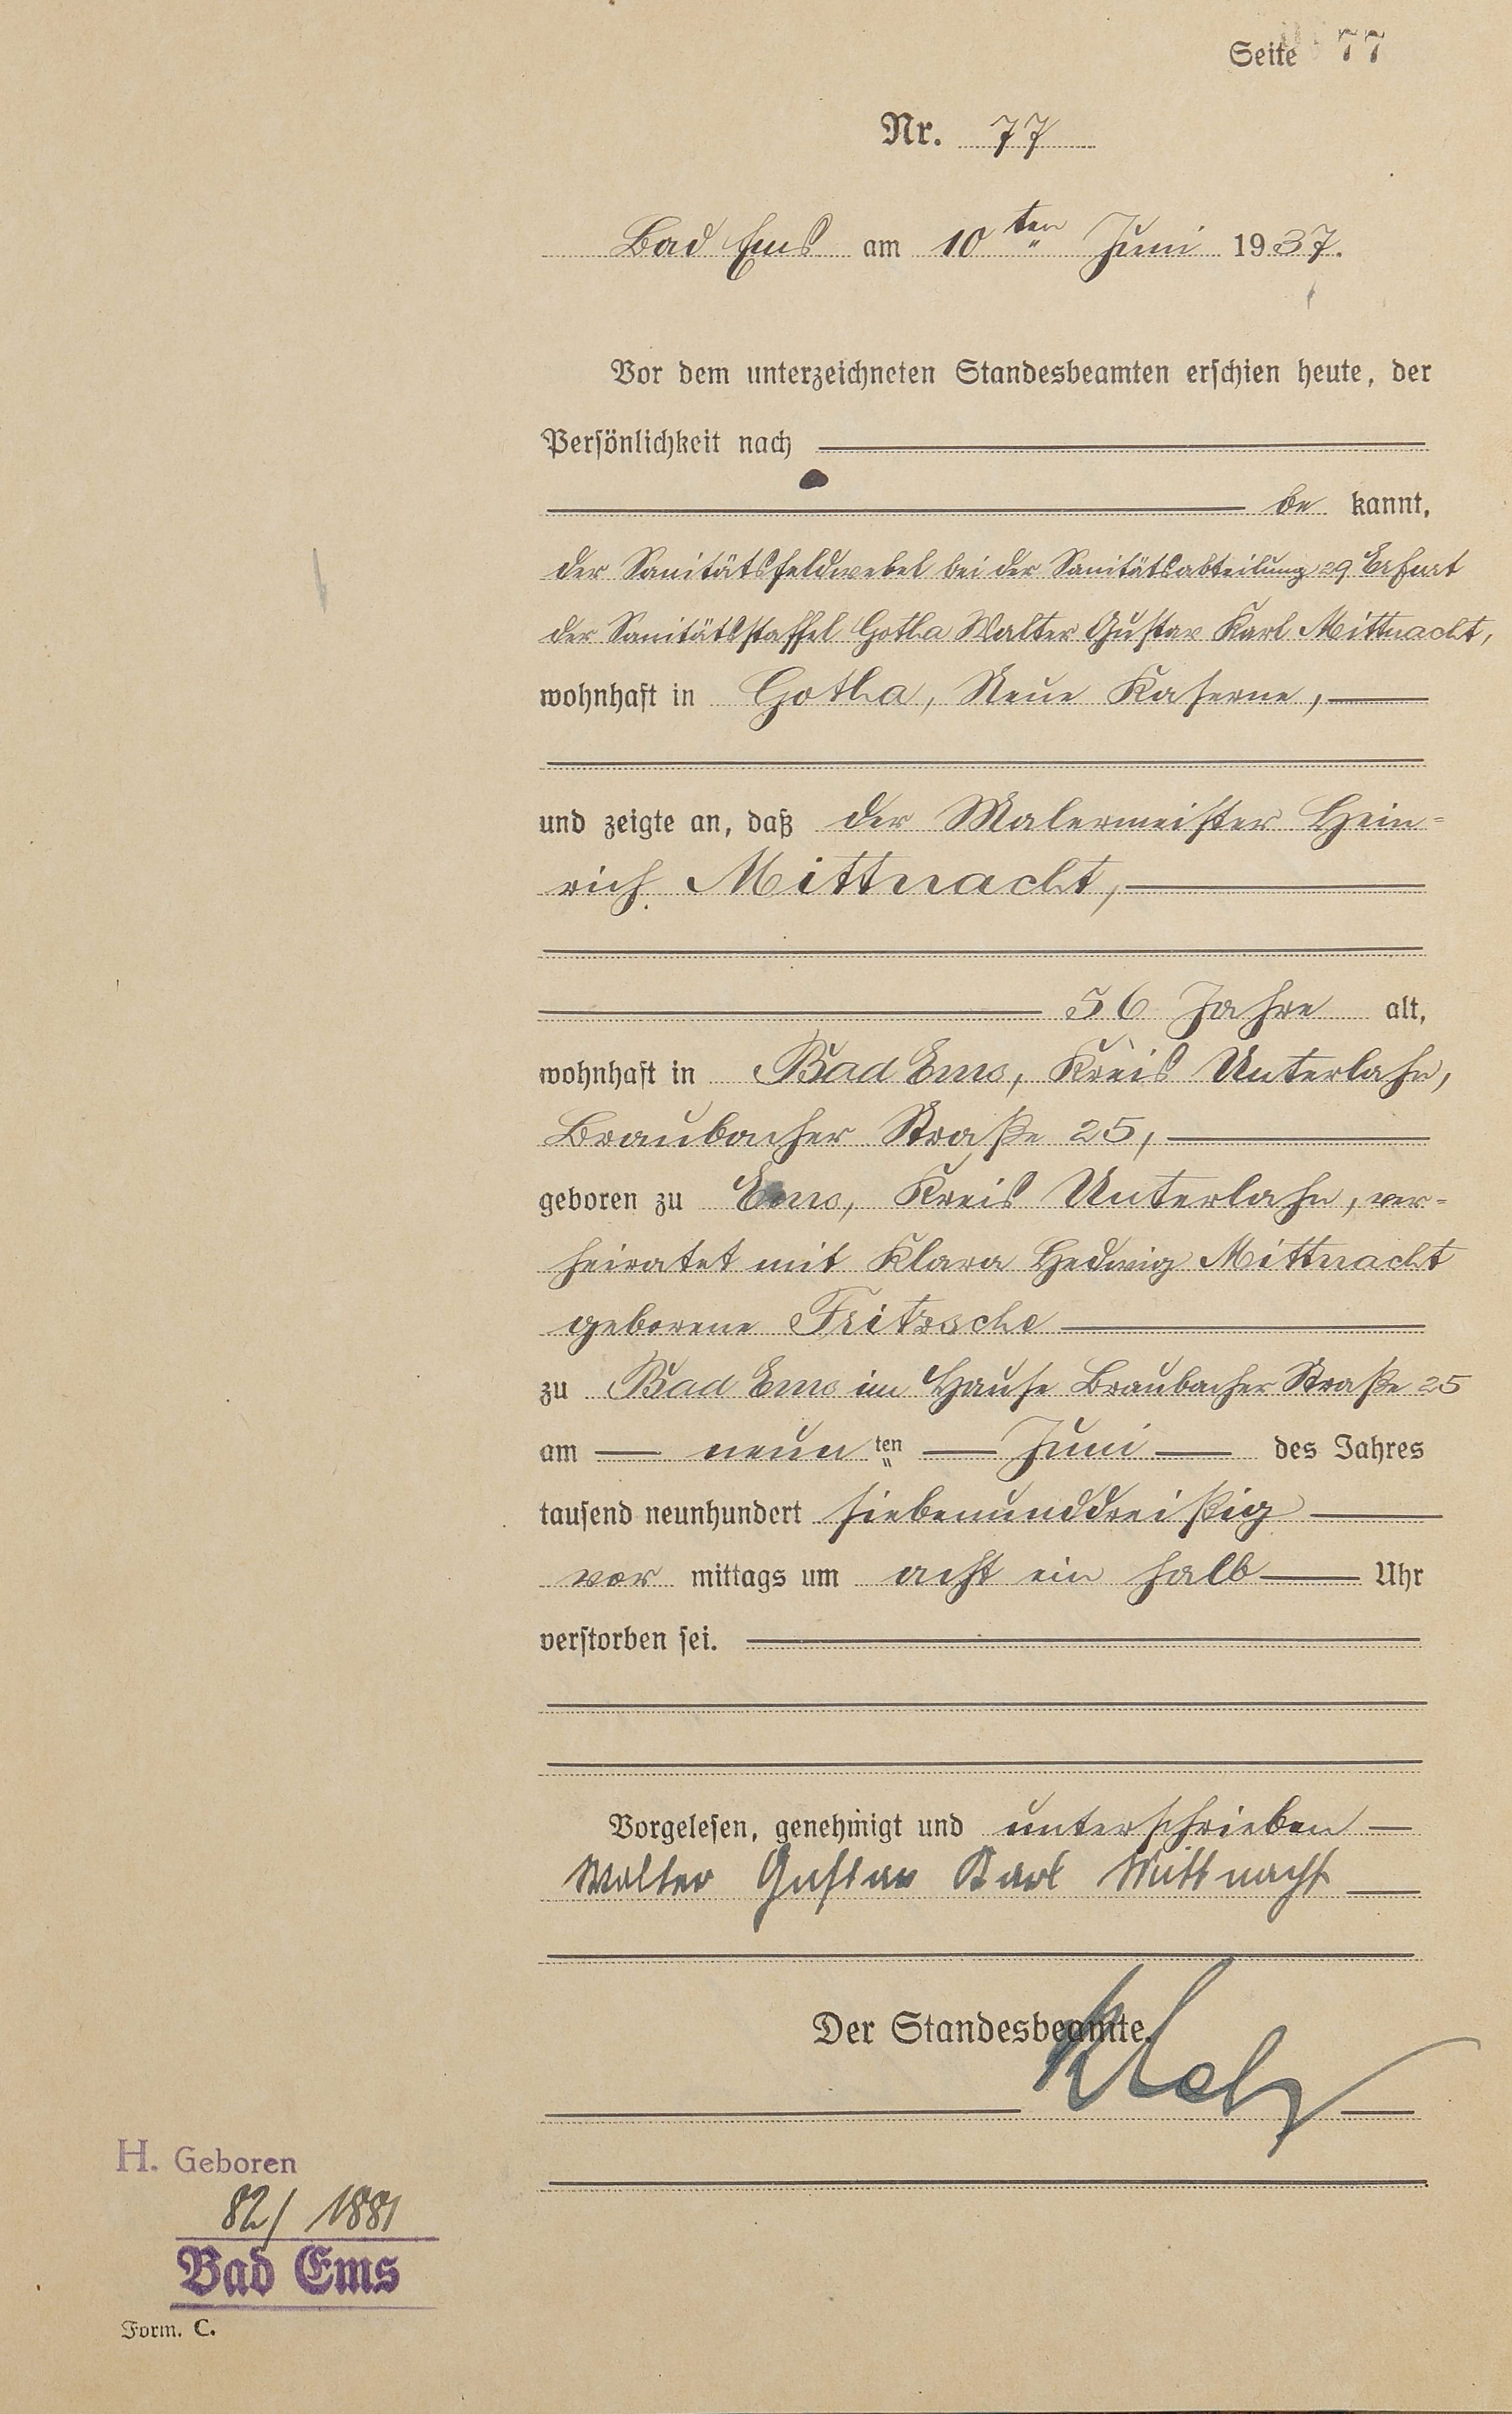 Seite 77
Nr. 77
Bad Ems am 10ten Juni 1937.
Vor dem unterzeichneten Standesbeamten erschien heute, der
Persönlichkeit nach
be kannt,
der Sanitätsfeldwebel bei der Sanitätsabteilung 29 Erfurt
der Sanitätsstaffel Gotha Walter Gustav Karl Mittnacht,
wohnhaft in Gotha, Neue Kaserne,
und zeigte an, daß der Malermeister Hein=
rich Mittnacht,
56 Jahre alt,
wohnhaft in Bad Ems, Kreis Unterlahn,
Braubacher Straße 25,
geboren zu Ems, Kreis Unterlahn, ver=
heiratet mit Klara Hedwig Mittnacht
geborene Fritzsche
zu Bad Ems im Hause Braubacher Straße 25
am neun ten Juni des Jahres
tausend neunhundert siebenunddreißig
vor mittags um acht ein halb Uhr
verstorben sei.
Vorgelesen, genehmigt und unterschrieben
Walter Gustav Karl Mittnacht
Der Standesbeamte.
H. Geboren
82/ 1881
Bad Ems
Form. C.